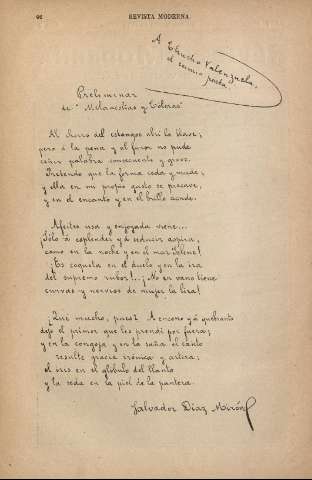 66
REVISTA MODERNA
A Jesús E. Valenzuela,
el eximio poeta.
Preliminar
de "Melancolías y Cóleras"
Al chorro del estanque abrí la llave;
pero á la pena y al furor no pude
ceñir palabra consecuente y grave.
Pretendo que la forma ceda y mude,
y ella en mi propio gusto se precave,
y en el encanto y en el brillo acude.
Afeites usa y enjoyada viene...
¡Sólo á esplender y á seducir aspira,
como en la noche y en el mar Selene!
¡Es coqueta en el duelo y en la ira
del supremo rubor!... ¡No en vano tiene
curvas y nervios de mujer la lira!
¿Qué mucho, pues? A encono y á quebranto
dejo el primor que les prendí por fuera;
y en la congoja y en la saña el canto
resulte gracia irónica y artera:
el iris en el glóbulo del llanto
y la seda en la piel de la pantera.
Salvador Díaz Mirón